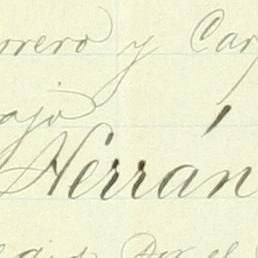 rrero y Car
ajo
Herrán